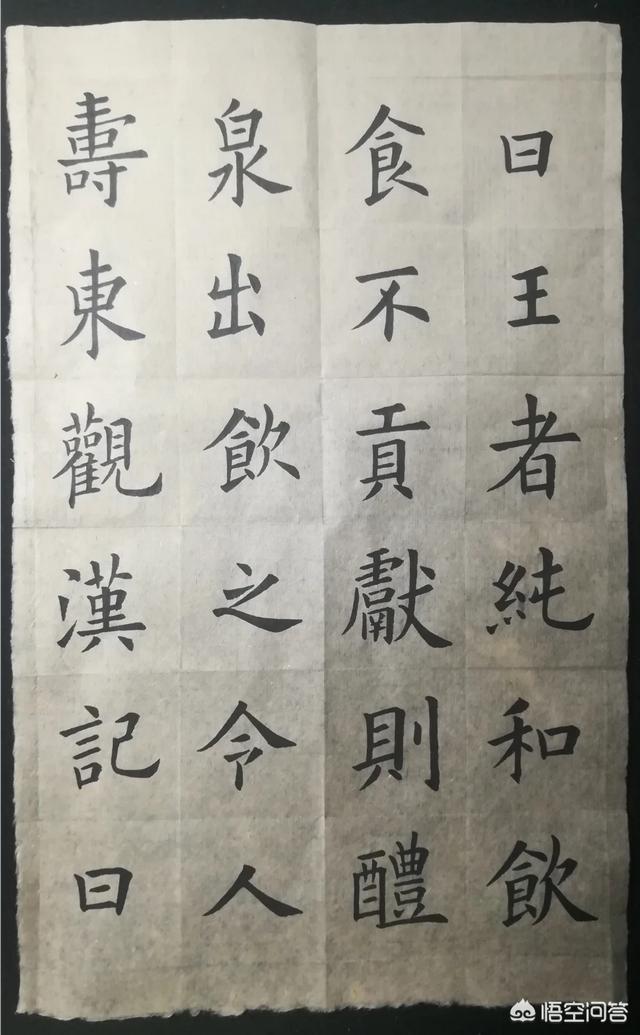 曰王者純和飲
食不貢獻則醴
泉出飲之令人
壽東觀漢記曰
悟空问答